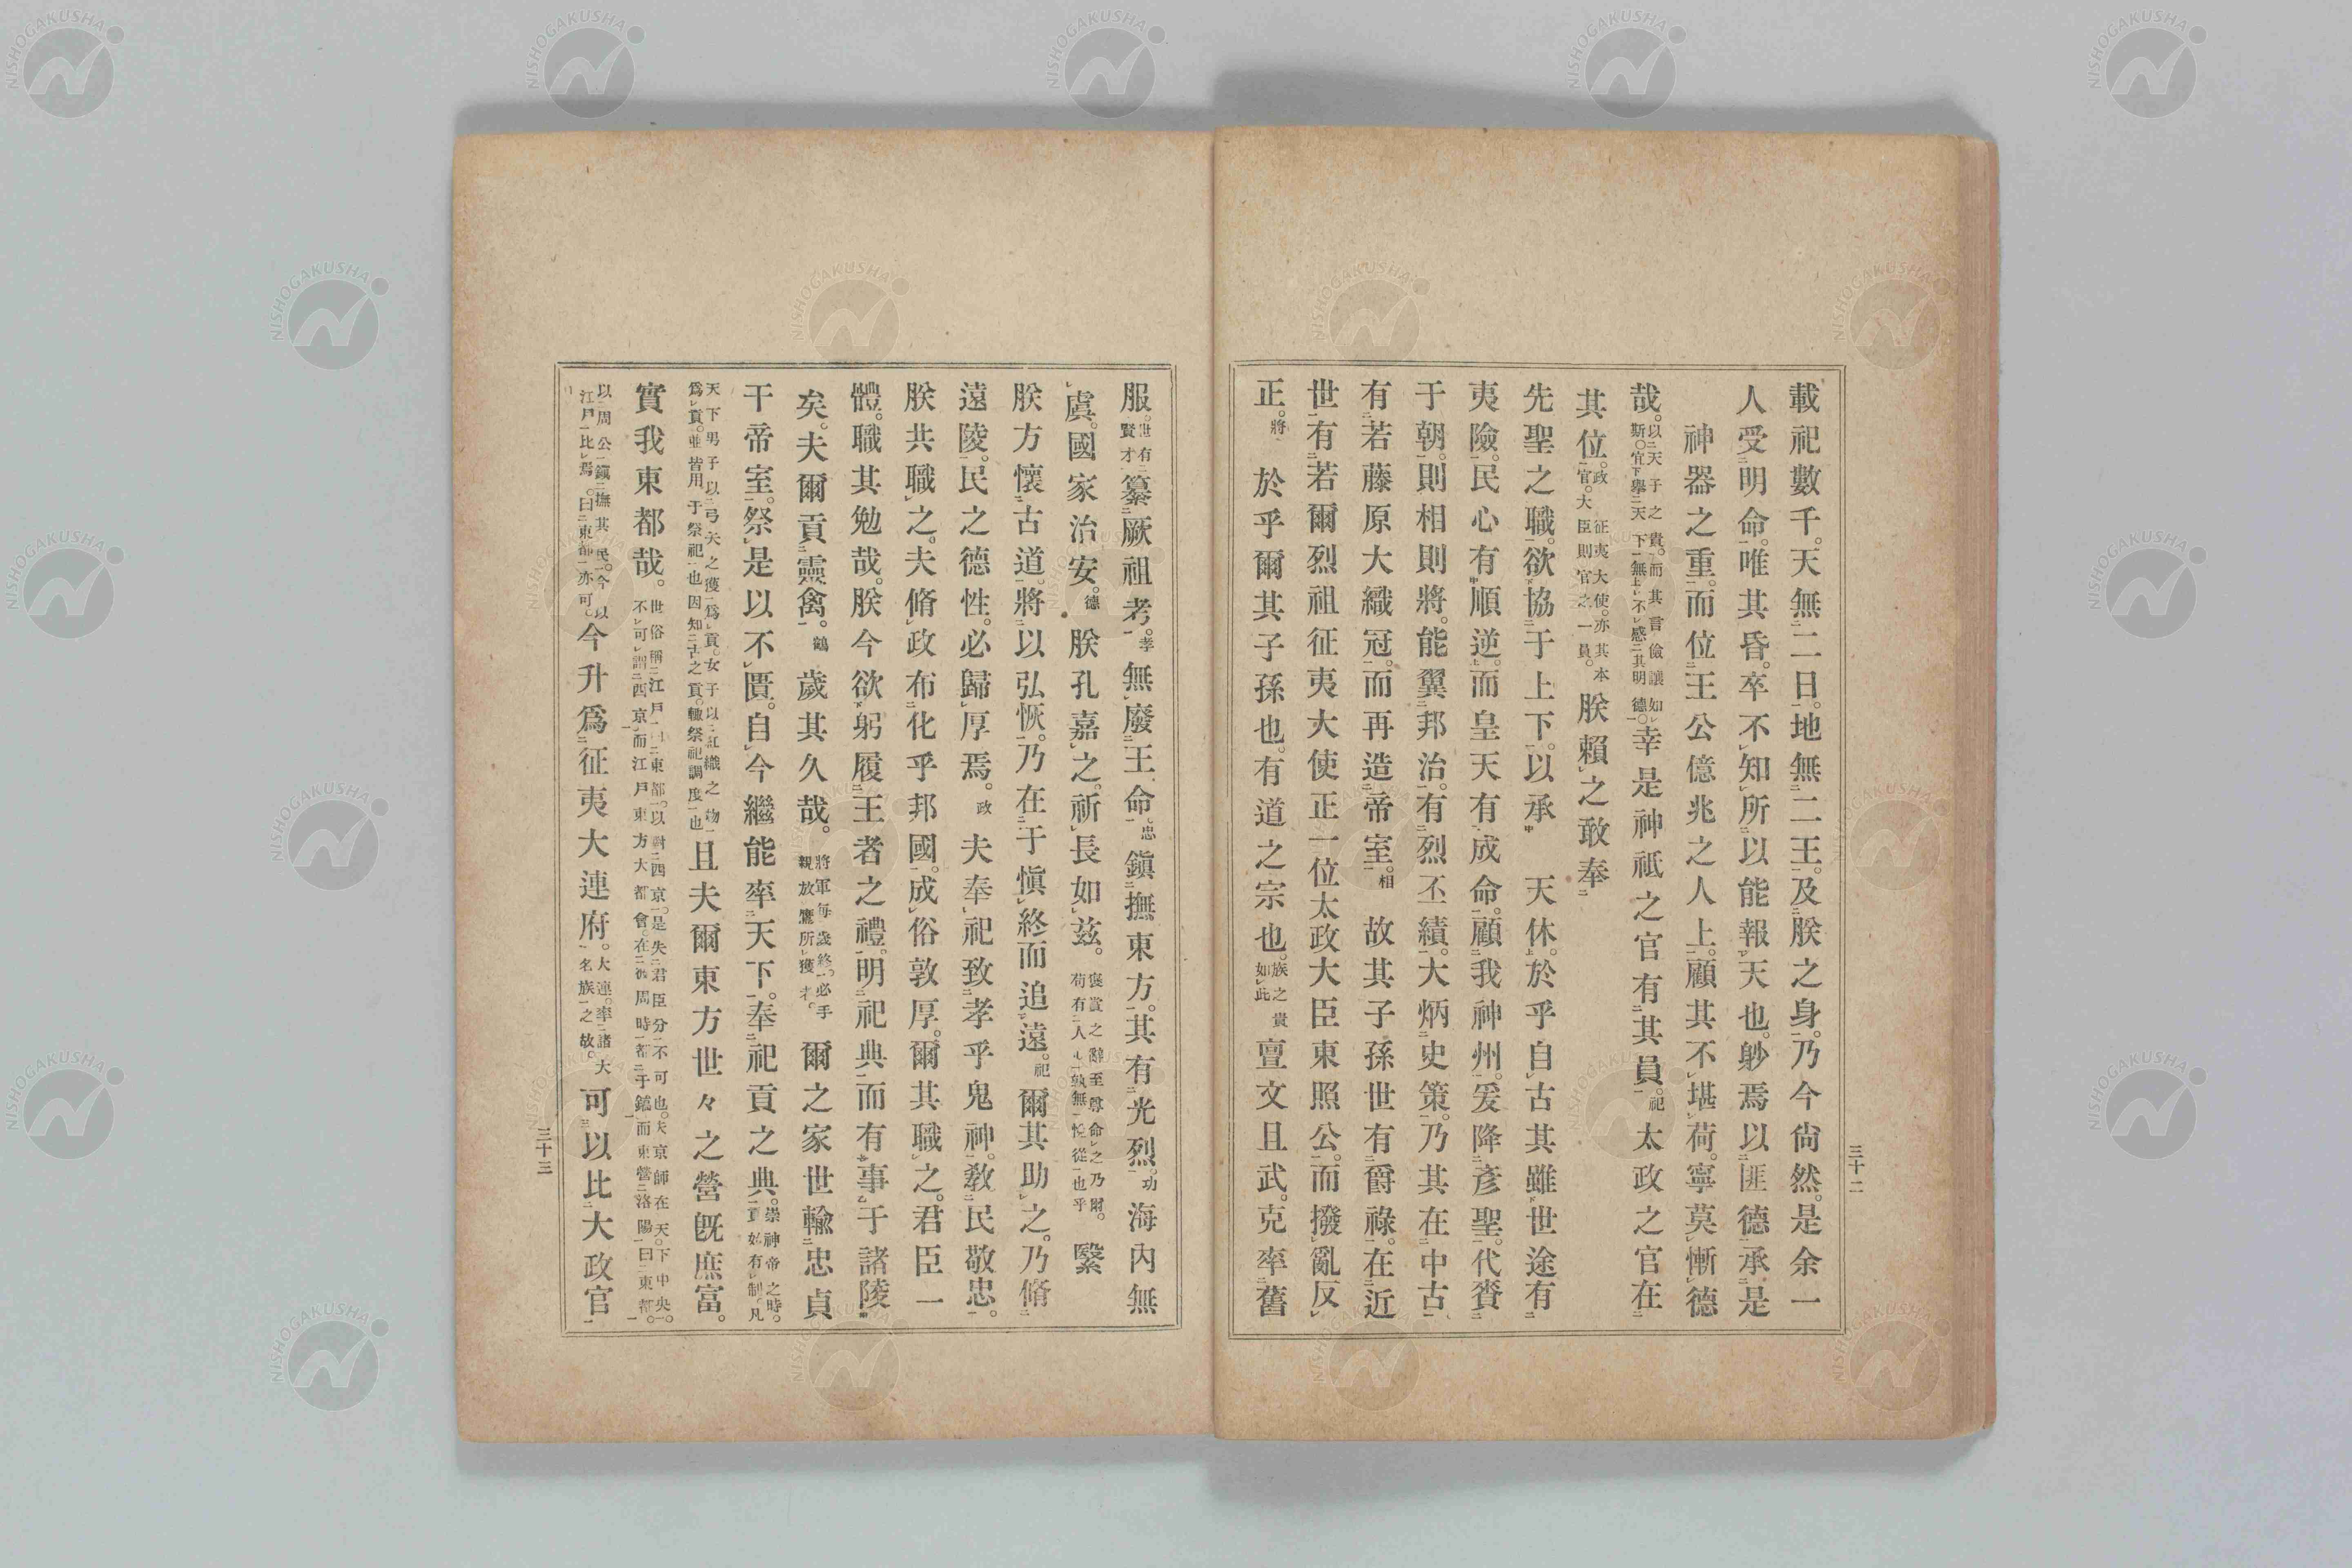 載祀數千。天無二日。地無二王。及朕之身。乃今尙然。是余一
人受明命。唯其昏。卒不知所以能報天也。眇焉以匪德承是
神器之重。而位王公億兆之人上。顧其不堪荷。寧莫慚德
哉。以天子之貴。而其言儉讓如斯。宜擧天下無不感其明德。幸是神祇之官有其員。祀太政之官在
其位。政官。征夷大使。亦其本官。大臣則官之一員。朕賴之敢奉
先聖之職。欲協于上下。以承天休。於乎自古其雖世途有
夷險。民心有順逆。而皇天有成命。顧我神州。爰降彥聖。代賚
于朝。則相則將。能翼邦治。有烈丕績。大炳史策。乃其在中古
有若藤原大織冠。而再造帝室。相故其子孫世有爵祿。在近
世有若爾烈祖征夷大使正一位太政大臣東照公。而撥亂反
正。將於乎爾其子孫也。有道之宗也。族之貴如此亶文且武。克率舊
三十二
服。世有賢才纂厥祖考。孝無廢王命。忠鎭撫東方。其有光烈。功海內無
虞。國家治安。德朕孔嘉之。祈長如玆。褒賞之辭至尊命之乃爾。苟有人心孰無悅從也乎緊
朕方懷古道。將以弘恢。乃在于愼終而追遠。祀爾其助之。乃脩
遠陵。民之德性。必歸厚焉。政夫奉祀致孝乎鬼神。敎民敬忠。
朕共職之。夫脩政布化乎邦國。成俗敦厚。爾其職之。君臣一
體。職其勉哉。朕今欲躬履王者之禮。明祀典而有事于諸陵
矣。夫爾貢靈禽。鶴歲其久哉。將軍每歲終。必手親放鷹所獲才。爾之家世輸忠貞
干帝室。祭是以不匱。自今繼能率天下。奉祀貢之典。崇神帝之時。貢始有制。凡
天下男子以弓矢之獲爲貢。女子以紅織之物爲貢。並皆用于祭祀也因知古之貢。轍祭祀調度也且夫爾東方世々之營旣庶富。
實我東都哉。世俗稱江戶曰東都。以對西京。是失君臣分不可也。夫京師在天下中央。不可謂西京。而江戶東方大都會。在猶周時都于鎬而東營洛陽曰東都。
以周公鎭撫其民。今以江戶比焉。曰東都亦可。今升爲征夷大連府。大連。率諸大名族之故。可以比大政官
三十三